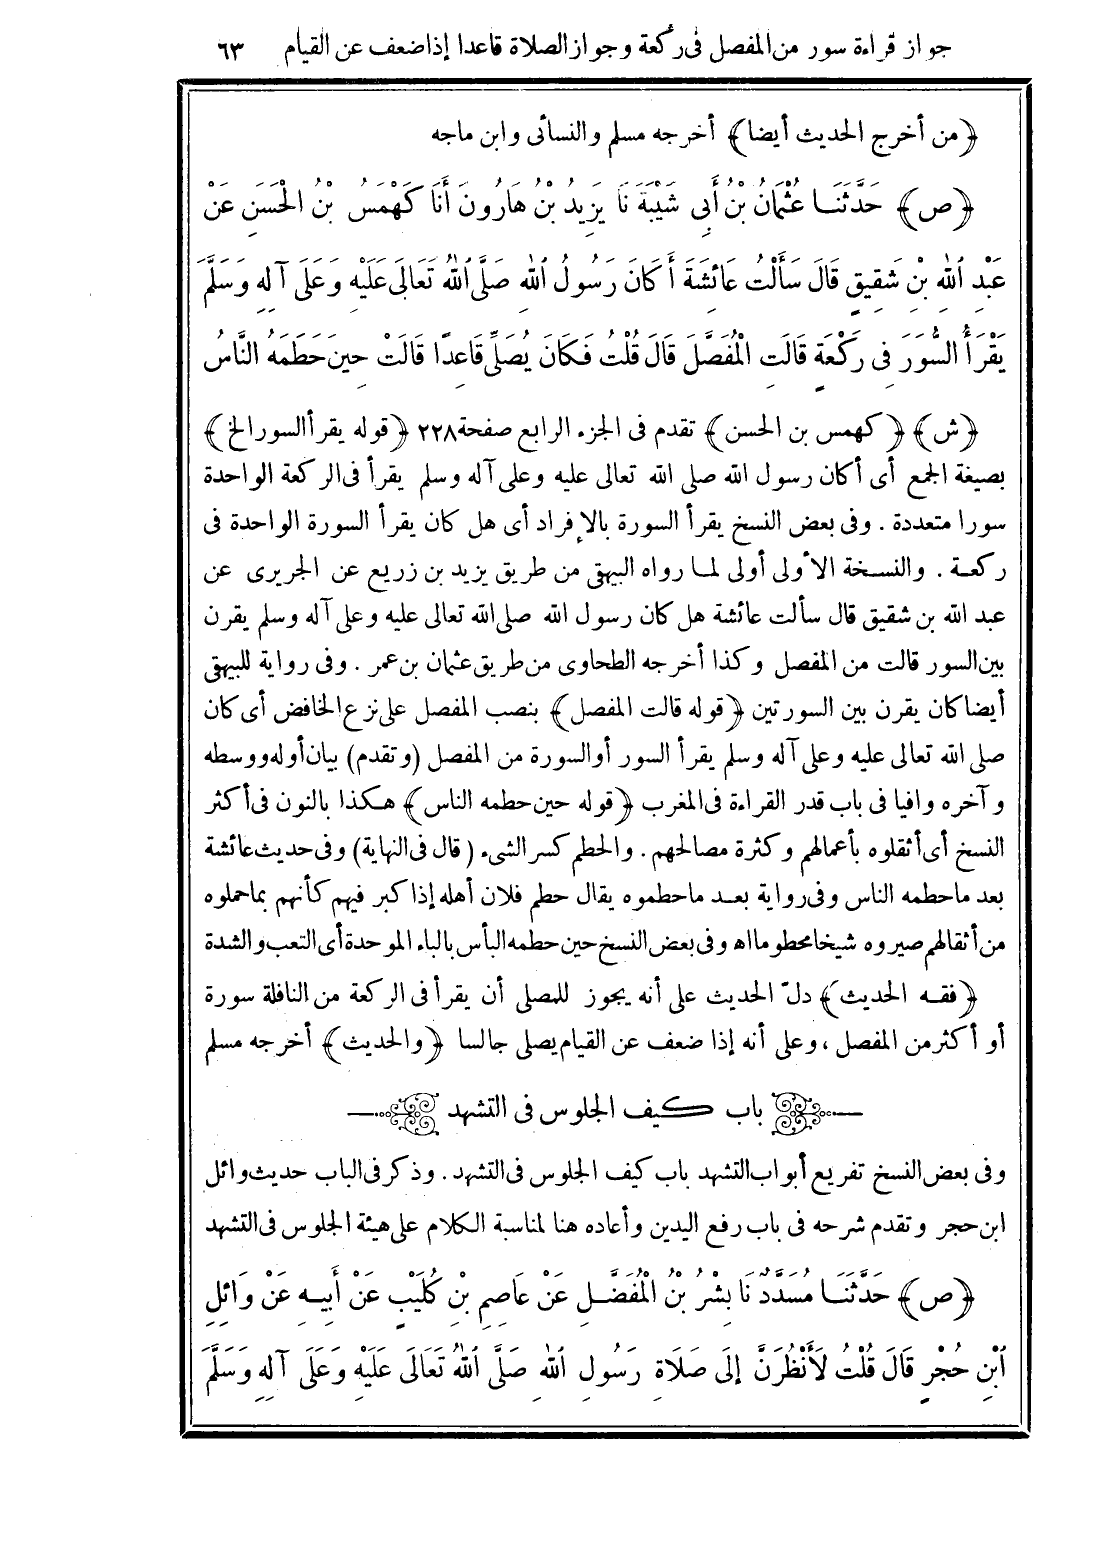 جواز قراءة سور من المفصل فى ركعة وجواز الصلاة قاعدا إذا ضعف عن القيام ٦٣
﴿من أخرج الحديث أيضا﴾ أخرجه مسلم والنسائى وابن ماجه
﴿ص﴾ حَدَّثَنَا عُثْمَانُ بْنُ أَبِي شَيْبَةَ نَا يَزِيدُ بْنُ هَارُونَ أَنَا كَهْمَسُ بْنُ الْحَسَنِ عَنْ
عَبْدِ اللهِ بْنِ شَقِيقٍ قَالَ سَأَلْتُ عَائِشَةَ أَكَانَ رَسُولُ اللهِ صَلَّى اللهُ تَعَالَى عَلَيْهِ وَعَلَى آلِهِ وَسَلَّمَ
يَقْرَأُ السُّوَرَ فِى رَكْعَةٍ قَالَتِ الْمُفَصَّلَ قَالَ قُلْتُ فَكَانَ يُصَلِّى قَاعِدًا قَالَتْ حِينَ حَطَمَهُ النَّاسُ
﴿ش﴾ ﴿كهمس بن الحسن﴾ تقدم فى الجزء الرابع صفحة ٢٢٨ ﴿قوله يقرأ السور الخ﴾
بصيغة الجمع أى أكان رسول الله صلى الله تعالى عليه وعلى آله وسلم يقرأ فى الركعة الواحدة
سورا متعددة . وفى بعض النسخ يقرأ السورة بالإفراد أى هل كان يقرأ السورة الواحدة فى
ركعة . والنسخة الأولى أولى لما رواه البيهقى من طريق يزيد بن زريع عن الجريرى عن
عبد الله بن شقيق قال سألت عائشة هل كان رسول الله صلى الله تعالى عليه وعلى آله وسلم يقرن
بين السور قالت من المفصل وكذا أخرجه الطحاوى من طريق عثمان بن عمر . وفى رواية للبيهقى
أيضا كان يقرن بين السورتين ﴿قوله قالت المفصل﴾ بنصب المفصل على نزع الخافض أى كان
صلى الله تعالى عليه وعلى آله وسلم يقرأ السور أو السورة من المفصل (وتقدم) بيان أوله ووسطه
وآخره وافيا فى باب قدر القراءة فى المغرب ﴿قوله حين حطمه الناس﴾ هكذا بالنون فى أكثر
النسخ أى أثقلوه بأعمالهم وكثرة مصالحهم . والحطم كسر الشىء (قال فى النهاية) وفى حديث عائشة
بعد ما حطمه الناس وفى رواية بعد ما حطموه يقال حطم فلان أهله إذا كبر فيهم كأنهم بما حملوه
من أثقالهم صيروه شيخا محطوما اه وفى بعض النسخ حين حطمه البأس بالباء الموحدة أى التعب والشدة
﴿فقه الحديث﴾ دلّ الحديث على أنه يجوز للمصلى أن يقرأ فى الركعة من النافلة سورة
أو أكثر من المفصل ، وعلى أنه إذا ضعف عن القيام يصلى جالسا ﴿والحديث﴾ أخرجه مسلم
باب كيف الجلوس فى التشهد
وفى بعض النسخ تفريع أبواب التشهد باب كيف الجلوس فى التشهد . وذكر فى الباب حديث وائل
ابن حجر وتقدم شرحه فى باب رفع اليدين وأعاده هنا لمناسبة الكلام على هيئة الجلوس فى التشهد
﴿ص﴾ حَدَّثَنَا مُسَدَّدٌ نَا بِشْرُ بْنُ الْمُفَضَّلِ عَنْ عَاصِمِ بْنِ كُلَيْبٍ عَنْ أَبِيهِ عَنْ وَائِلِ
ابْنِ حُجْرٍ قَالَ قُلْتُ لَأَنْظُرَنَّ إِلَى صَلَاةِ رَسُولِ اللهِ صَلَّى اللهُ تَعَالَى عَلَيْهِ وَعَلَى آلِهِ وَسَلَّمَ